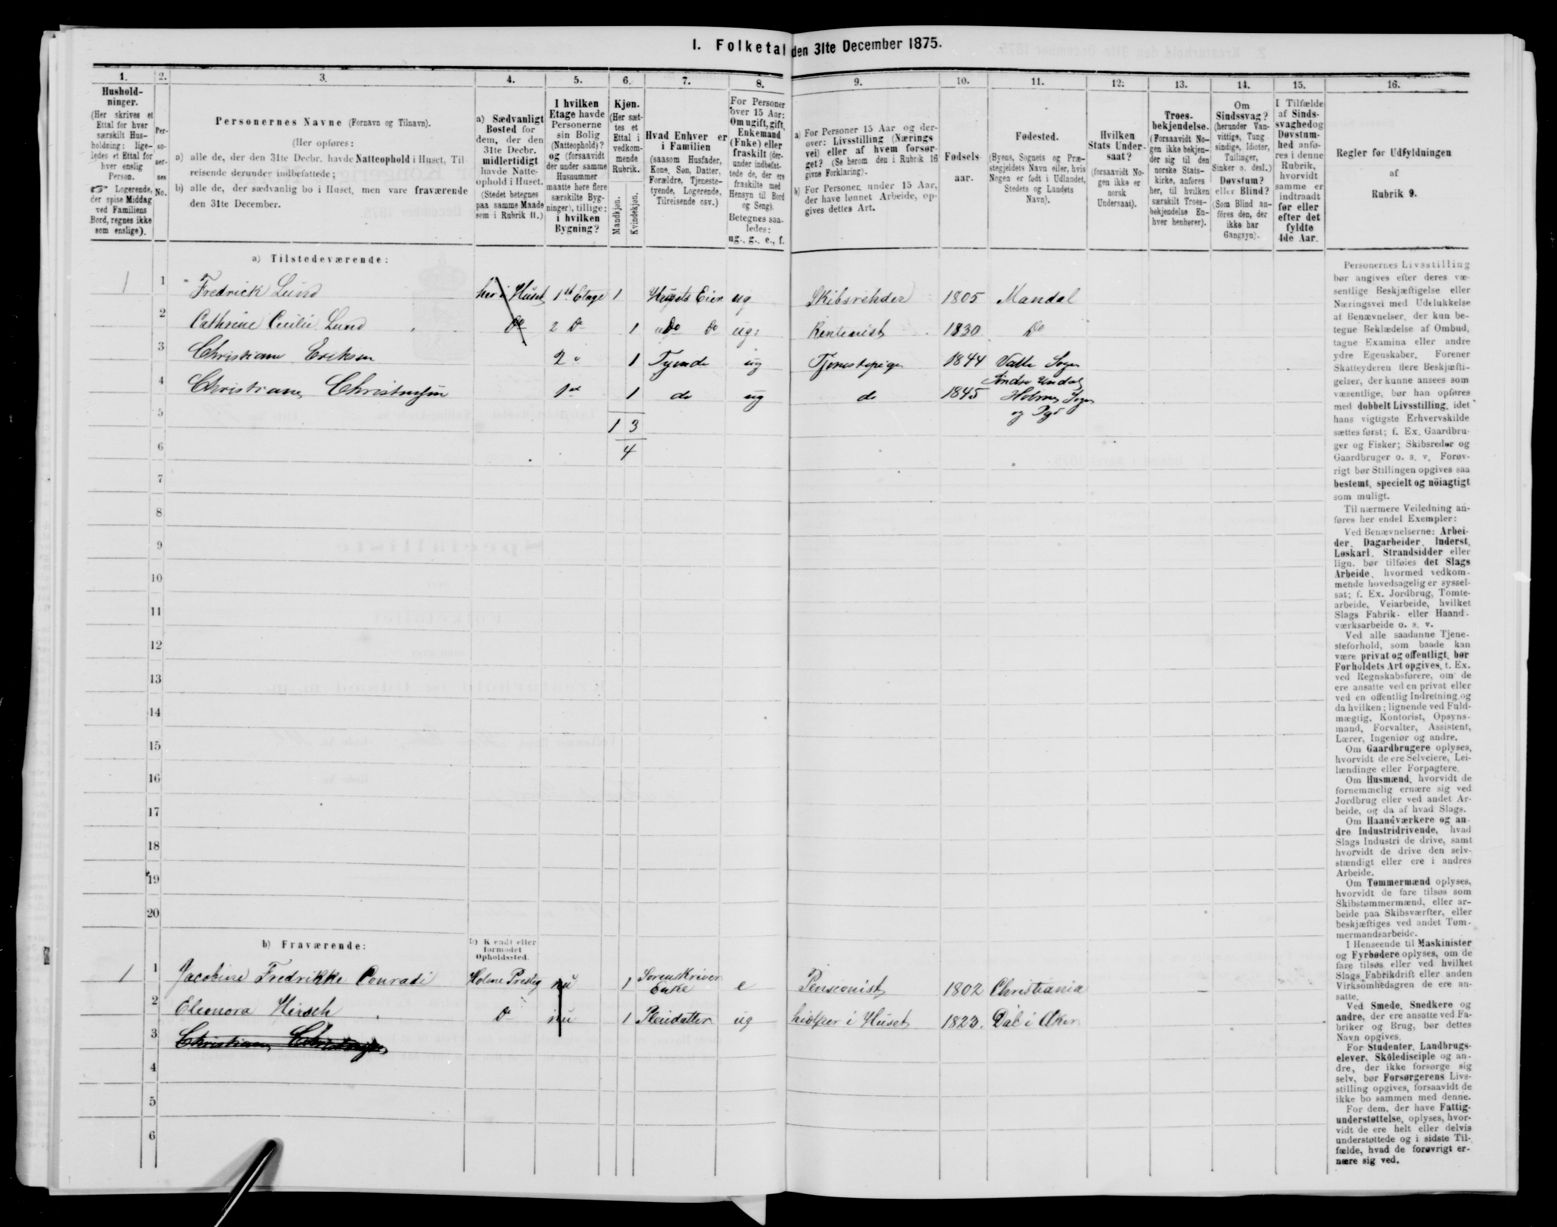 I. Folketal den 31te December 1875.
1. 2. 3. 4. 5. 6. 7. 8. 9. 10. 11. 12. 13. 14. 15. 16.
Hushold-
ninger.
(Her skrives et
Ettal for hver
særskilt Hus-
holdning; lige-
ledes et Ettal for
hver enslig
Person.
Logerende,
der spise Middag
ved Familiens
Bord, regnes ikke
som enslige).
Per-
so-
ner-
nes
No.
Personernes Navne (Fornavn og Tilnavn).
(Her opføres:
a) alle de, der den 31te Decbr. havde Natteophold i Huset, Til-
reisende derunder indbefattede;
b) alle de, der sædvanlig bo i Huset, men vare fraværende
den 31te December.
a) Sædvanligt
Bosted for
dem, der den
31te Decbr.
midlertidigt
havde Natte-
ophold i Huset.
(Stedet betegnes
paa samme Maade
som i Rubrik 11.)
I hvilken
Etage havde
Personerne
sin Bolig
(Natteophold)?
og (forsaavidt
der under samme
Husnummer
maatte høre flere
særskilte Byg-
ninger), tillige:
i hvilken
Bygning?
Kjøn.
(Her sæt-
tes et
Ettal i
vedkom-
mende
Rubrik.
Mandkjøn.
Kvindekjøn.
Hvad Enhver er
i Familien
(saasom Husfader,
Kone, Søn, Datter,
Forældre, Tjeneste-
tyende, Logerende,
Tilreisende osv.)
For Personer
over 15 Aar:
Om ugift, gift,
Enkemand
(Enke) eller
fraskilt (der-
under indbefat-
tede de, der ere
fraskilte med
Hensyn til Bord
og Seng).
Betegnes saa-
ledes:
ug., g., e., f.
a) For Personer 15 Aar og der-
over: Livsstilling (Nærings
vei) eller af hvem forsør-
get? (Se herom den i Rubrik 16
givne Forklaring).
b) For Personer, under 15 Aar,
der have lønnet Arbeide, op-
gives dettes Art.
Fødsels
aar.
Fødested.
(Byens, Sognets og Præ-
stegjeldets Navn eller, hvis
Nogen er født i Udlandet,
Stedets og Landets
Navn).
Hvilken
Stats Under-
saat?
(forsaavidt No-
gen ikke er
norsk
Undersaat).
Troes-
bekjendelse.
(Forsaavidt No-
gen ikke bekjen-
der sig til den
norske Stats-
kirke, anføres
her, til hvilken
særskilt Troes-
bekjendelse En-
hver henhører).
Om
Sindssvag?
(herunder Van-
vittige, Tung
sindige, Idioter,
Tullinger,
Sinker o. desl.)
Døvstum?
eller Blind?
(Som Blind an-
føres den, der
ikke har
Gangsyn).
I Tilfælde
af Sinds-
svaghed og
Døvstum-
hed anfø-
res i denne
Rubrik,
hvorvidt
samme er
indtraadt
før eller
efter det
fyldte
4de Aar.
Regler for Udfyldningen
af
Rubrik 9.
a) Tilstedeværende:
1 1 Fredrick Lund her i Huset 1st Etage 1 Husets Eier ug Skibsrehder 1805 Mandal
2 Cathrine Cecilie Lund Do 2 Do 1 Do Do ug: Rentenist 1830 Do
3 Christiane Eriksen 2 " 1 Tyende ug Tjenestepige 1844 Valle Sogn
4 Christiane Christensen 1st 1 do ug do 1845 Søndre Undal Holmes Sogn
og Pgd
5 1 3
6 4
7
8
9
10
11
12
13
14
15
16
17
18
19
20
b) Fraværende:
b) Kendt eller
formodet
Opholdssted.
1 1 Jacobine Fredrikke Conradi Holme Prestg nu 1 Sorenskriver
Enke e Pensionist 1802 Christiania
2 Eleonora Hirsch Do nu 1 Pleiedatter ug hielper i Huset 1823. Dal i Aker
3 Christiane Christensen
4
5
6
Personernes Livsstilling
bør angives efter deres væ-
sentlige Beskjæftigelse eller
Næringsvei med Udelukkelse
af Benævnelser, der kun be-
tegne Beklædelse af Ombud,
tagne Examina eller andre
ydre Egenskaber. Forener
Skatteyderen flere Beskjæfti-
gelser, der kunne ansees som
væsentlige, bør han opføres
med dobbelt Livsstilling, idet
hans vigtigste Erhvervskilde
sættes først; f. Ex. Gaardbru-
ger og Fisker; Skibsreder og
Gaardbruger o. s. v. Forøv-
rigt bør Stillingen opgives saa
bestemt, specielt og nöiagtigt
som muligt.
Til nærmere Veiledning an-
føres her endel Exempler:
Ved Benævnelserne: Arbei-
der, Dagarbeider, Inderst,
Løskarl, Strandsidder eller
lign. bør tilføies det Slags
Arbeide, hvormed vedkom-
mende hovedsagelig er syssel-
sat; f. Ex. Jordbrug, Tomte-
arbeide, Veiarbeide, hvilket
Slags Fabrik- eller Haand-
værksarbeide o. s. v.
Ved alle saadanne Tjene-
steforhold, som baade kan
være privat og offentligt, bør
Forholdets Art opgives, t. Ex.
ved Regnskabsførere, om de
ere ansatte ved en privat eller
ved en offentlig Indretning og
da hvilken; lignende ved Fuld-
mægtig, Kontorist, Opsyns-
mand, Forvalter, Assistent,
Lærer, Ingeniør og andre.
Om Gaardbrugere oplyses,
hvorvidt de ere Selveiere, Lei-
lændinge eller Forpagtere.
Om Husmænd, hvorvidt de
fornemmelig ernære sig ved
Jordbrug eller ved andet Ar-
beide, og da af hvad Slags.
Om Haandværkere og an-
dre Industridrivende, hvad
Slags Industri de drive, samt
hvorvidt de drive den selv-
stændigt eller ere i andres
Arbeide.
Om Tømmermænd oplyses,
hvorvidt de fare tilsøs som
Skibstømmermænd, eller ar-
beide paa Skibsværfter, eller
beskjæftiges ved andet Tøm-
mermandsarbeide.
I Henseende til Maskinister
og Fyrbødere oplyses, om de
fare tilsøs eller ved hvilket
Slags Fabrikdrift eller anden
Virksomhedsgren de ere an-
satte.
Ved Smede, Snedkere og
andre, der ere ansatte ved Fa-
briker og Brug, bør dettes
Navn opgives.
For Studenter, Landbrugs-
elever, Skoledisciple og an-
dre, der ikke forsørge sig
selv, bør Forsørgerens Livs-
stilling opgives, forsaavidt de
ikke bo sammen med denne.
For dem, der have Fattig-
understøttelse, oplyses, hvor-
vidt de ere helt eller delvis
understøttede og i sidste Til-
fælde, hvad de forøvrigt er-
nære sig ved.